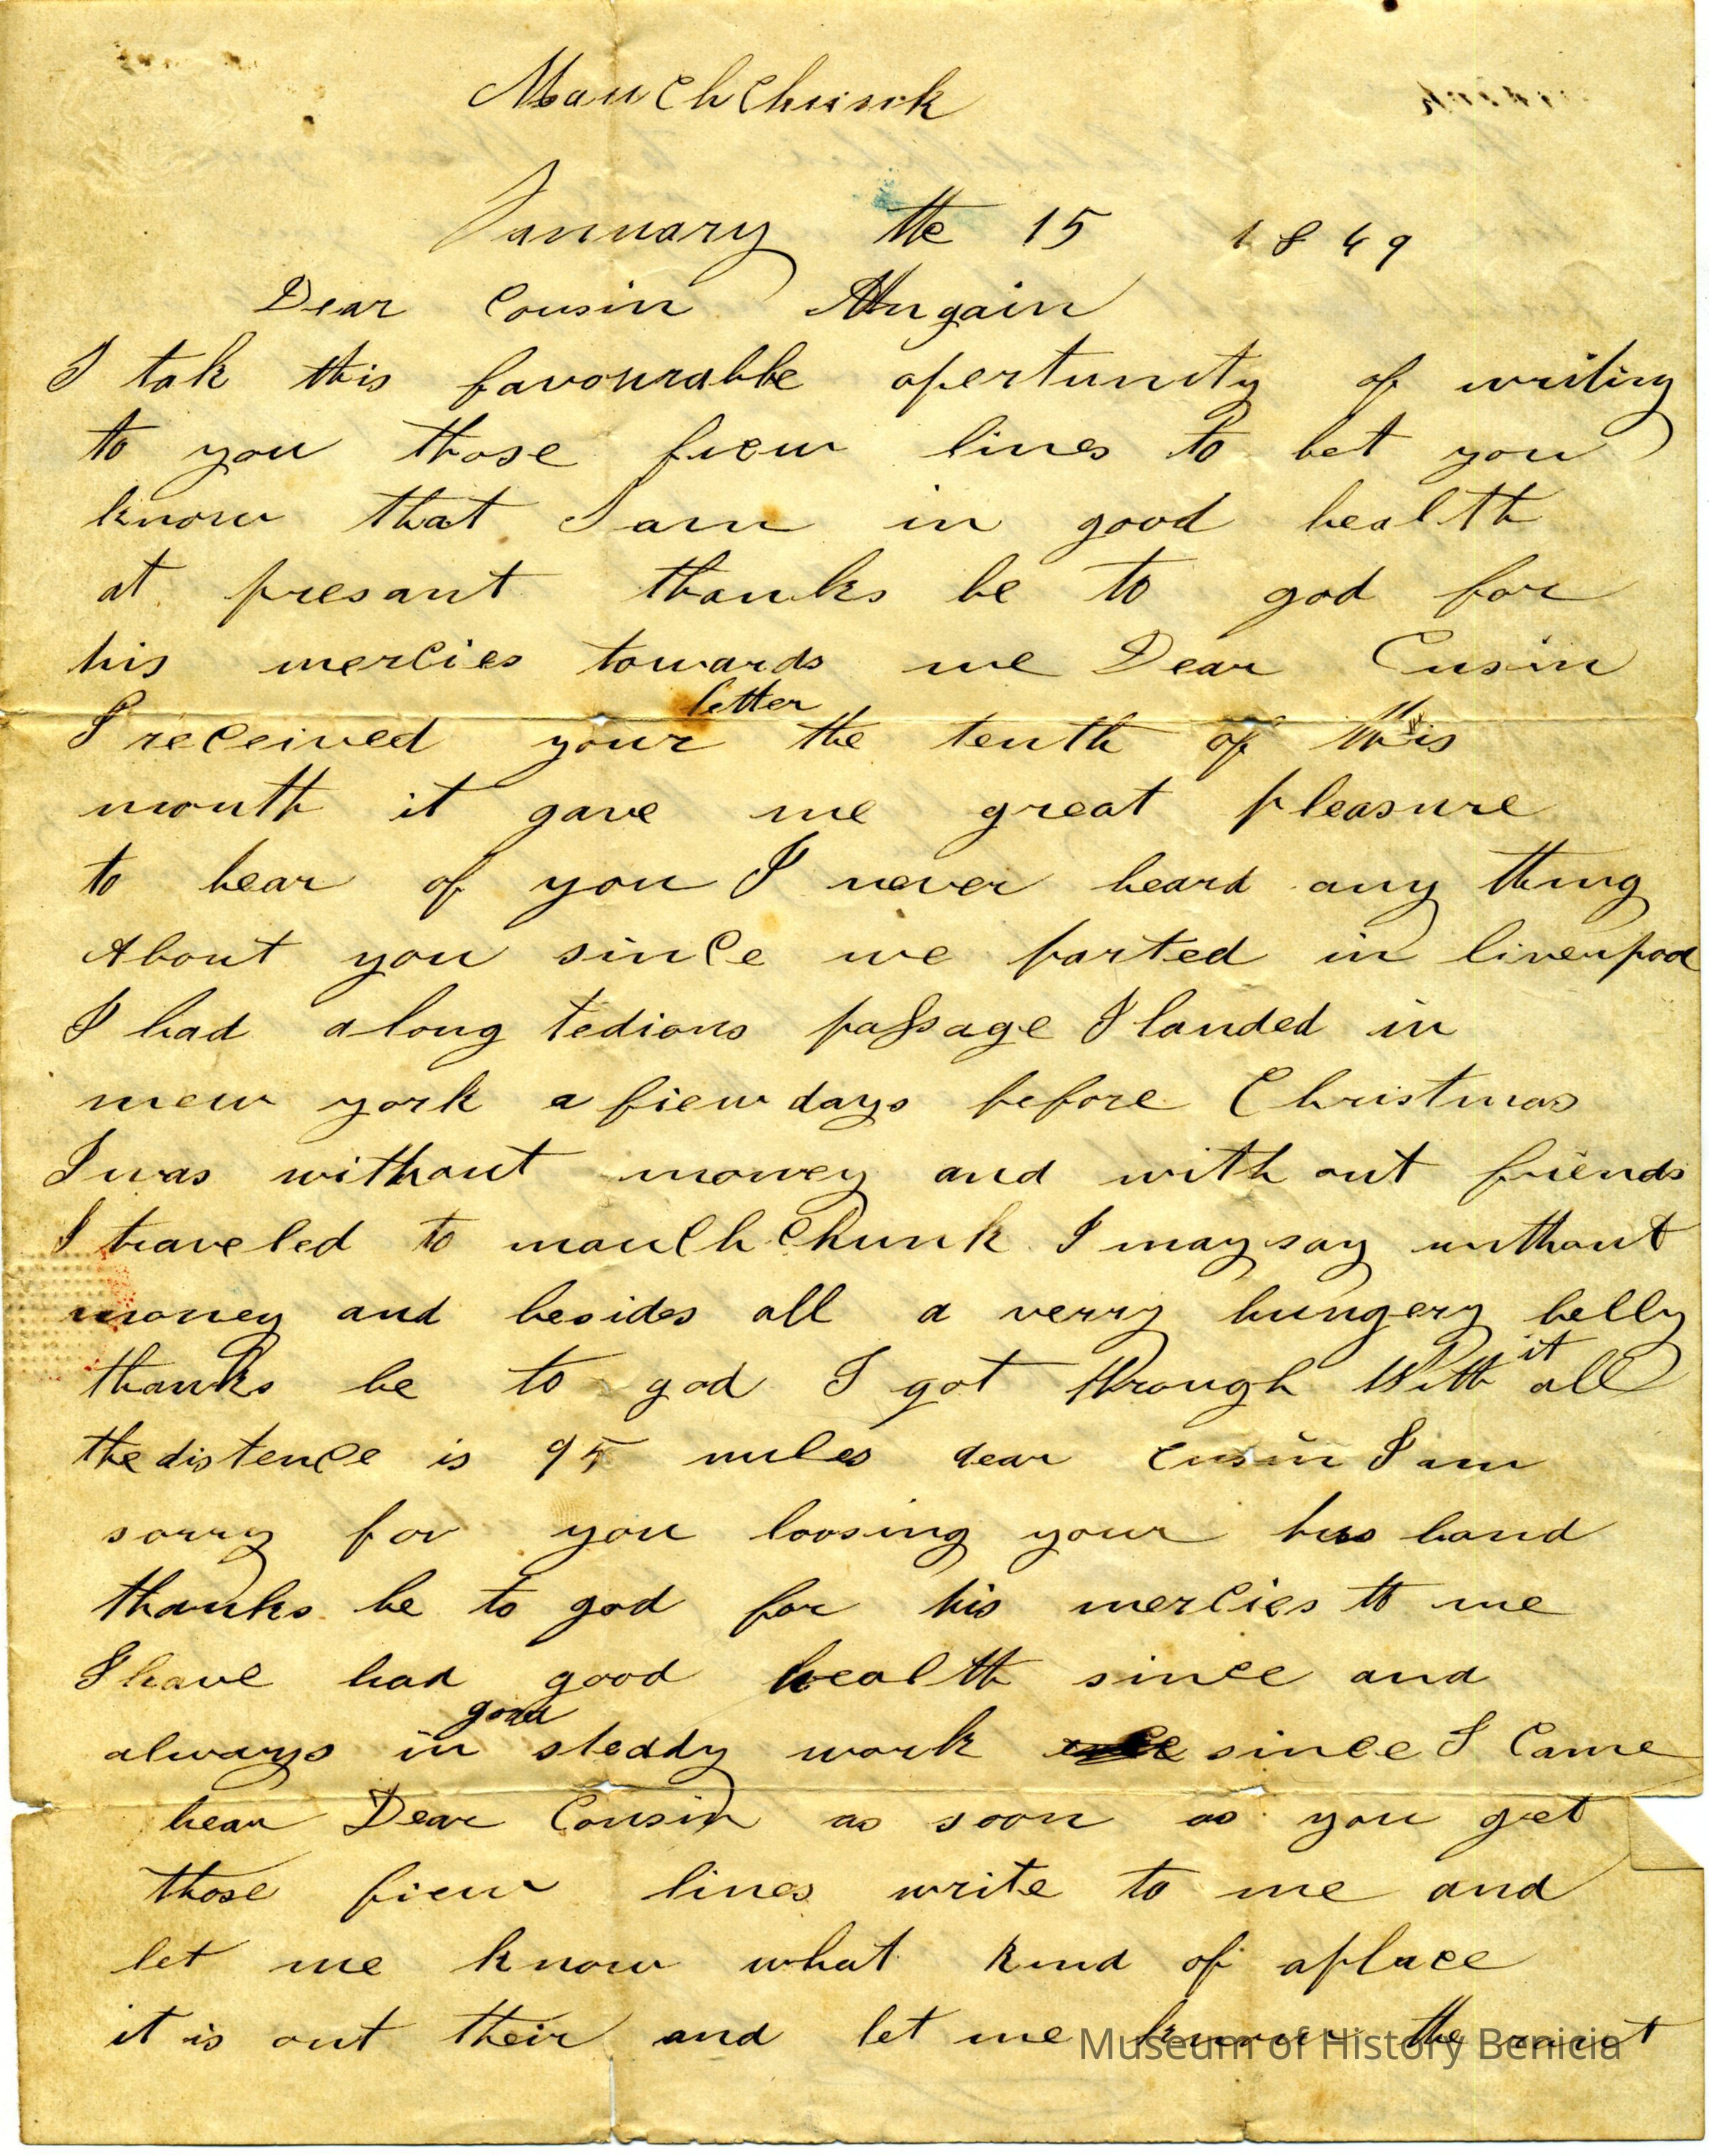 Mauch Chunk
January the 15 1849
Dear Cousin
I tak this favourable opertunity of writing
to you those fiew lines to let you
know that I am in good health
at presant thanks be to god for
his mercies towards me Dear Cusin
letter
I received your the tenth of this
month it gave me great pleasure
to hear of you I never heard any thing
About you since we parted in liverpool
I had along tedious passage I landed in
new york a fiew days before Christmas
I was without money and with out friends
I traveled to mauch Chunk I may say without
money and besides all a verry hungery belly
it
thanks be to god I got through With all
the distence is 95 miles dear Cusin I am
sorry for you loosing your hus band
thanks be to god for his mercies to me
I have had good health since and
good
always in steddy work since I Came
hear Dear Cousin as soon as you get
those fiew lines write to me and
let me know what kind of aplace
it is out their and let me know the rout
Museum of History Benicia